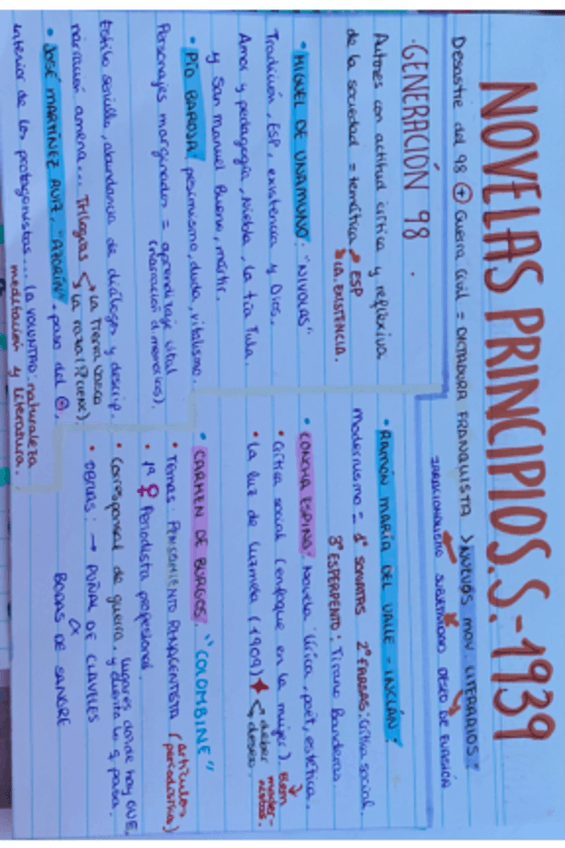 NOVELAS PRINCIPIOS.S.-1939
Desastre del 98 + Guerra Civil = DICTADURA FRANQUISTA > NUEVOS MOV. LITERARIOS:
IRRACIONALISMO SUBJETIVISMO DESEO DE EVASIÓN
·GENERACIÓN 98.
Autores con actitud crítica y reflexiva
de la sociedad = temática ESP
LA EXISTENCIA.
• MIGUEL DE UNAMUNO: "NIVOLAS"
Tradición, ESP, existencia y Dios.
Amor y pedagogía, Niebla, La tía Tula.
y San Manuel Bueno, mártir.
• PÍO BAROJA pesimismo, duda, vitalismo.
Personajes marginados = aprendizaje vital
(narración d memorias).
Estilo sencillo, abundancia de diálogos y descrip.
narración amena... Trilogías La Tierra vasca
La raza (PCIENC).
• JOSÉ MARTÍNEZ RUIZ, "AZORÍN", paso del
interior de los protagonistas... La VOLUNTAD: naturaleza
meditación y literatura.
• RAMÓN MARÍA DEL VALLE-INCLÁN:
Modernismo = 1º SONATAS 2º FARSAS: crítica social.
3º ESPERPENTO: Tirano Banderas
• CONCHA ESPINA: Novela lírica, poét, estética.
• Crítica social (enfoque en la mujer)
• La luz de Luzmela (1909) deber
deseo.
• CARMEN DE BURGOS: "COLOMBINE"
• Temas: PENSAMIENTO (artículos
periodística)
• 1ª ♀ Periodista profesional.
• Corresponsal de guerra. lugares donde hay GUE.
y cuenta lo q pasa.
• OBRAS: → PUÑAL DE CLAVELES
BODAS DE SANGRE